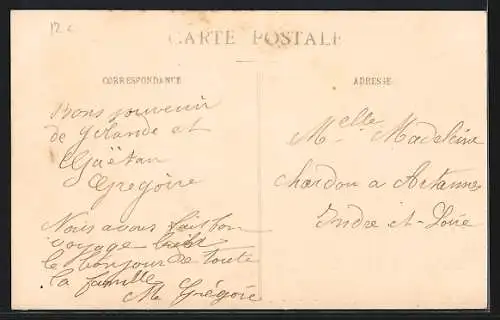 12 c
CARTE POSTALE
CORRESPONDANCE
ADRESSE
Bons souvenir
de Yolande et
Gaëtan
Grégoire
Nous avons fait bon
voyage
le bonjour de toute
la famille
Me Grégoire
Melle Madeleine
Chardon a Artannes
Indre et Loire